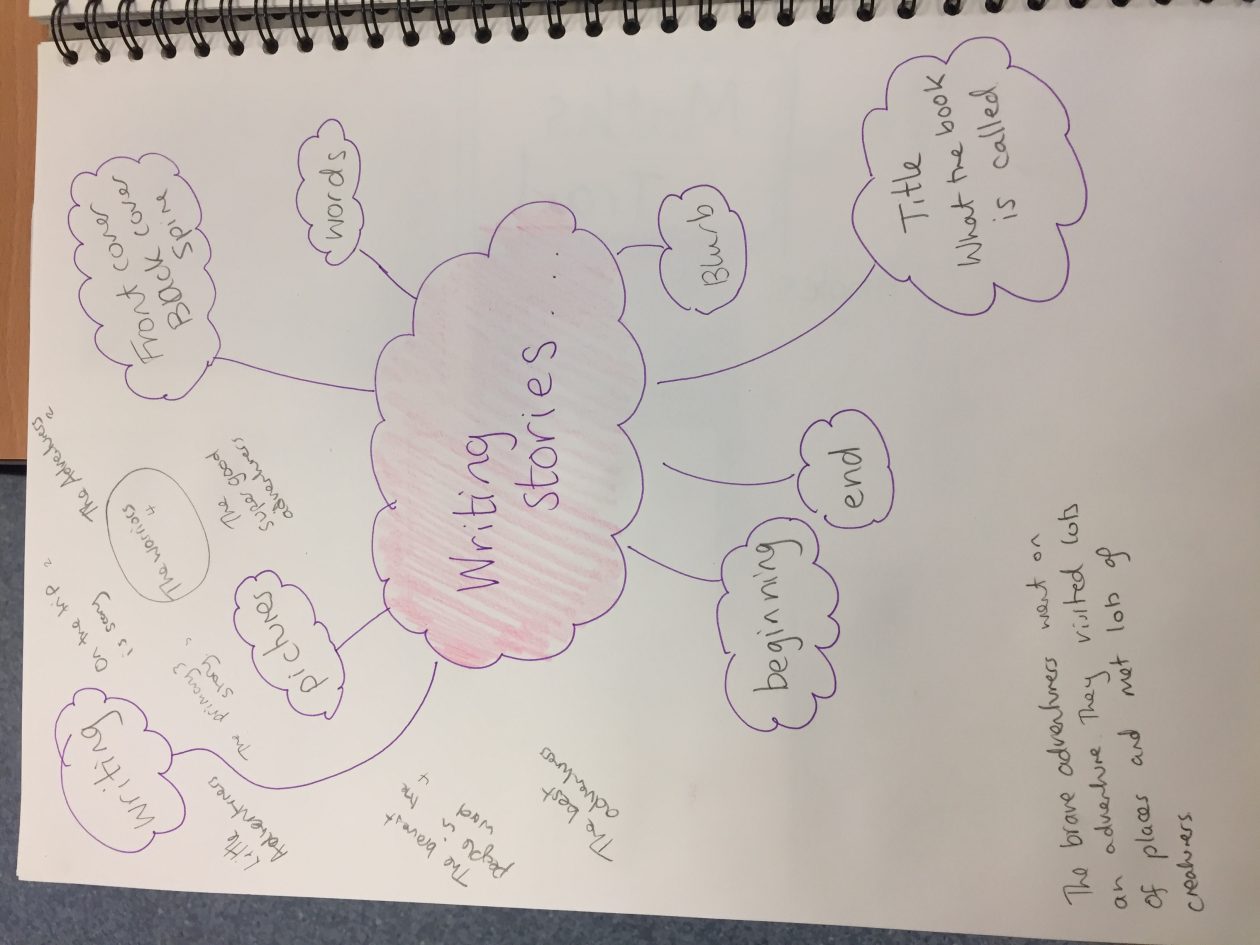 Writing
stories ...
Front cover
Back cover
Spine
words
Blurb
Title
What the book
is called
end
beginning
pictures
Writing
The
super good
adventurers
The Warriors
4
On the trip 2
is scary
The primary 3
story
Little
Adventurers
The bravest
people in the
word 4
The best
adventurers
The brave adventurers went on
an adventure. They visited lots
of places and met lots of
creatures